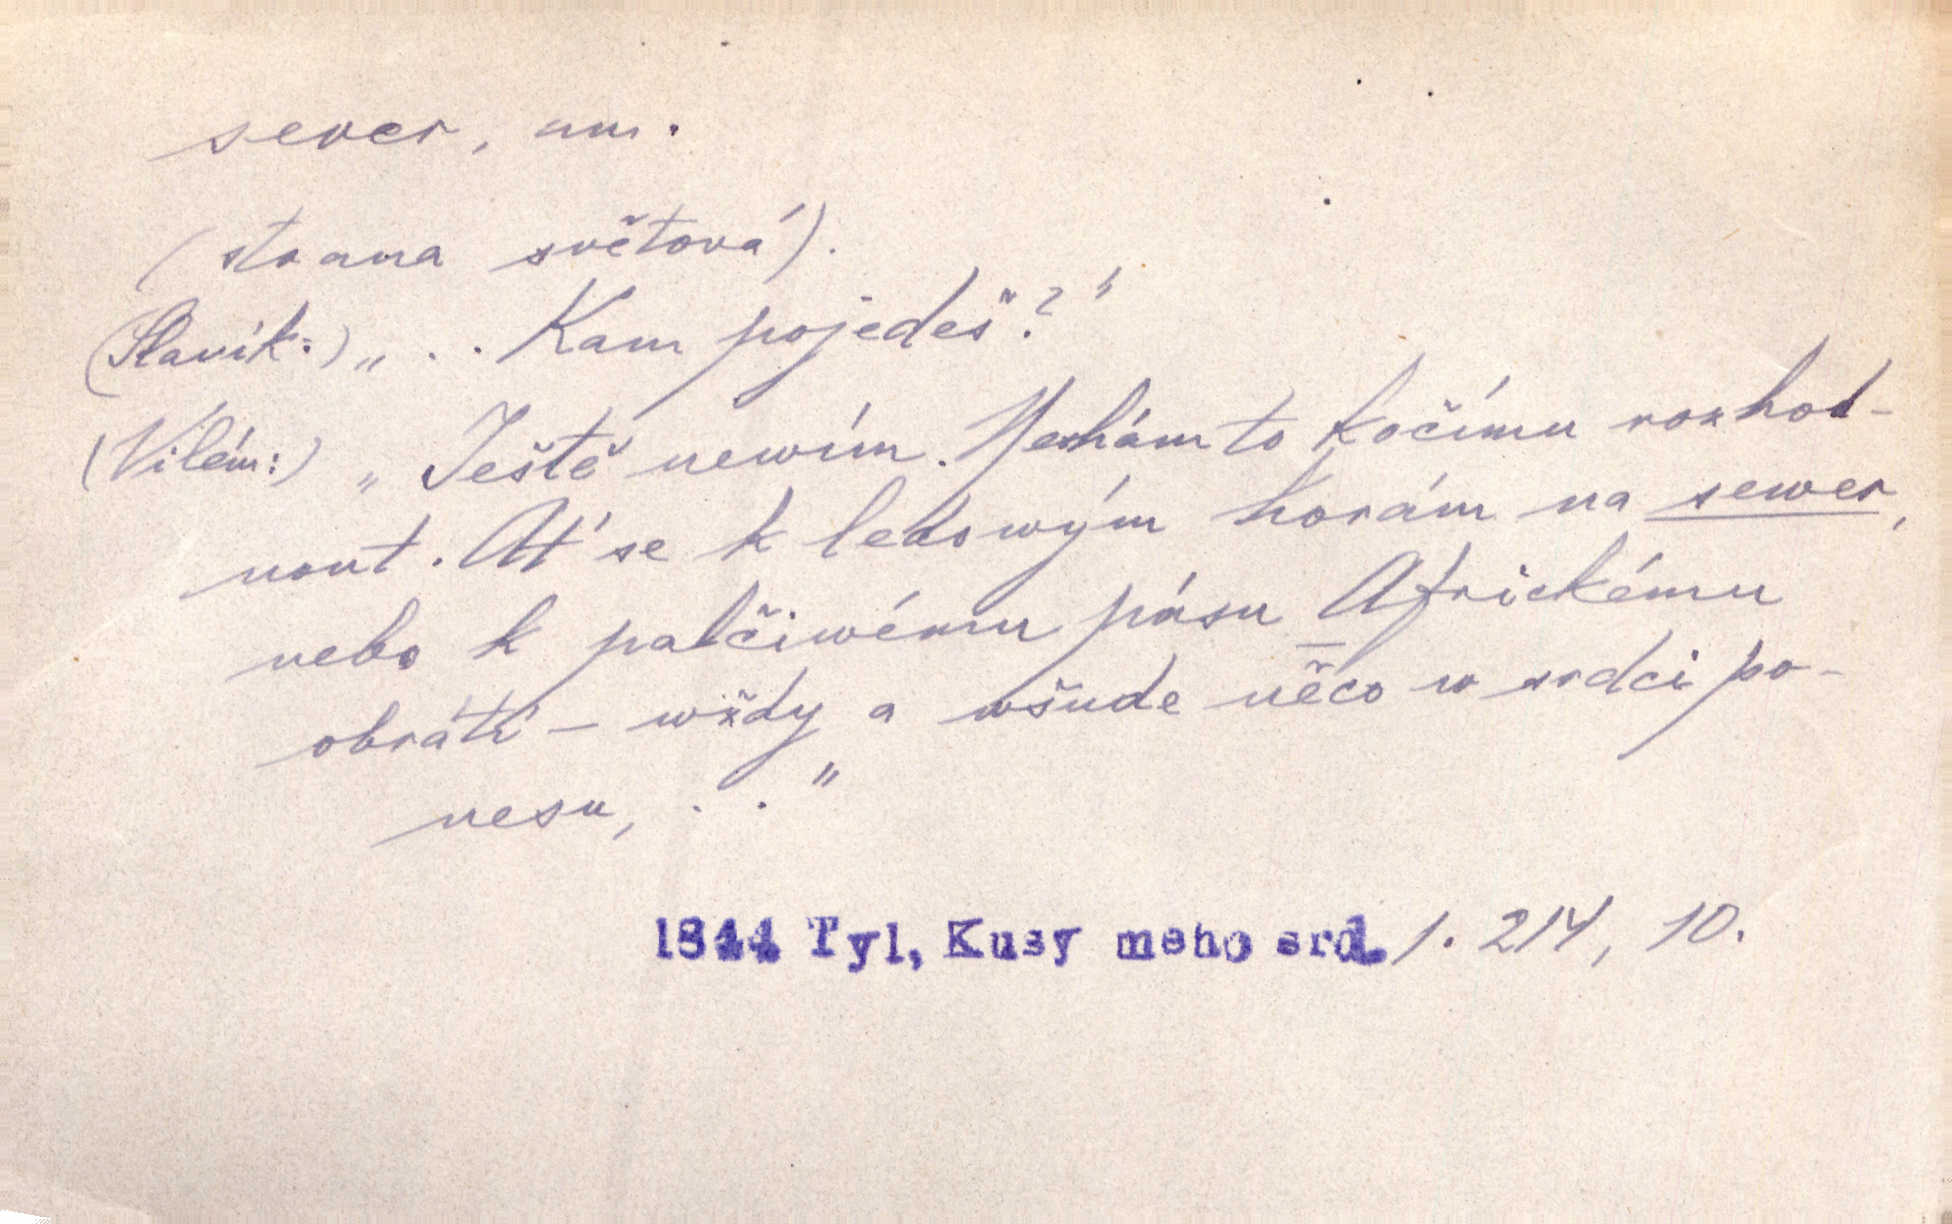 sever, um.
(strana světová).
(Slavík:) „ . . Kam pojedeš?"
(Vilém:) „Ještě newím. Nechám to kočímu rozhod-
nout. Ať se k ledowým horám na sewer,
nebo k palčiwému pásu Africkému
obrátí – wždy a wšude něco w srdci po-
nesu, . . "
1844 Tyl, Kusy meho srd. 1. 214, 10.